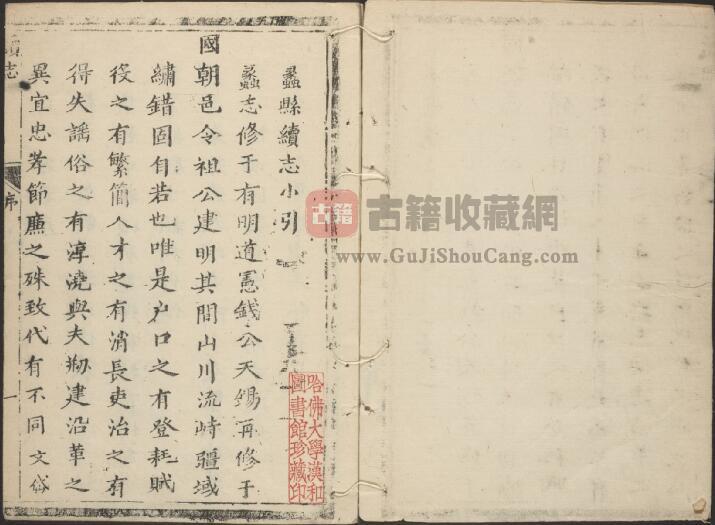 蠡縣續志小引
蠡志修于有明道憲錢公天錫再修于
國朝邑令祖公建明其間山川流峙疆域
繡錯固自若也唯是户口之有登耗賦
役之有繁簡人才之有消長吏治之有
得失謡俗之有淳澆與夫剙建沿革之
異宜忠孝節廉之殊致代有不同文俗
續志
序
一
哈佛大學漢和
圖書館珍藏印
古籍
古籍收藏網
www.GuJiShouCang.com